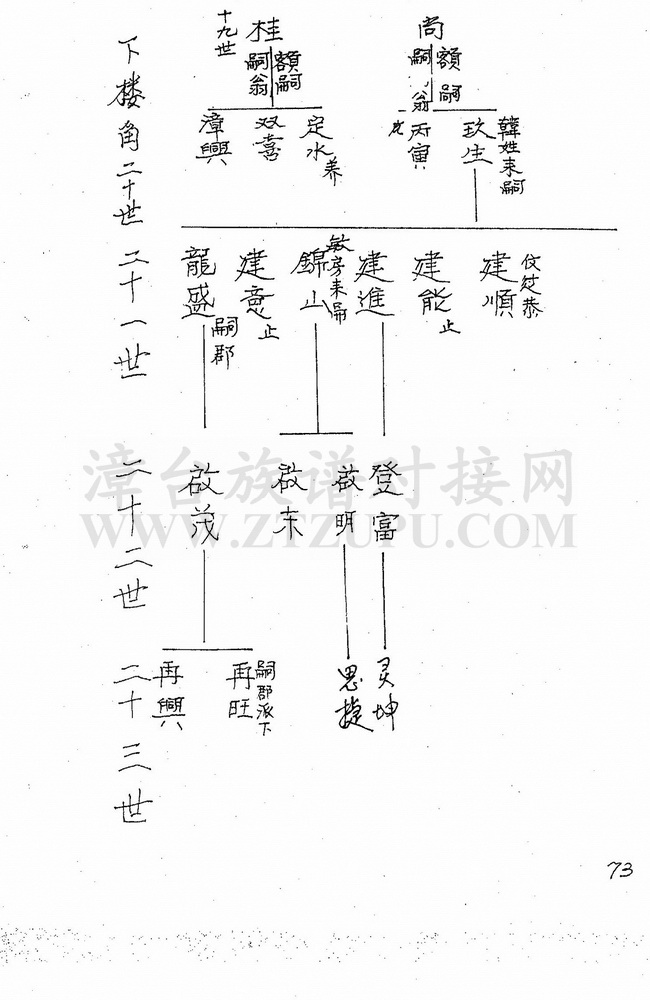 十九世
桂
額嗣
嗣翁
尚
額嗣
嗣翁
下楼角二十世
漳興
双喜
定水
养
丙寅
玖生
韓姓来嗣
二十一世
龍盛
嗣郡
建意
止
錦山
敏房来嗣
建進
建能
止
建順
二十二世
啟茂
啟东
啟明
登富
漳台族谱对接网
WWW.ZTZUPU.COM
二十三世
再興
再旺
嗣郡派下
思捷
灵坤
73